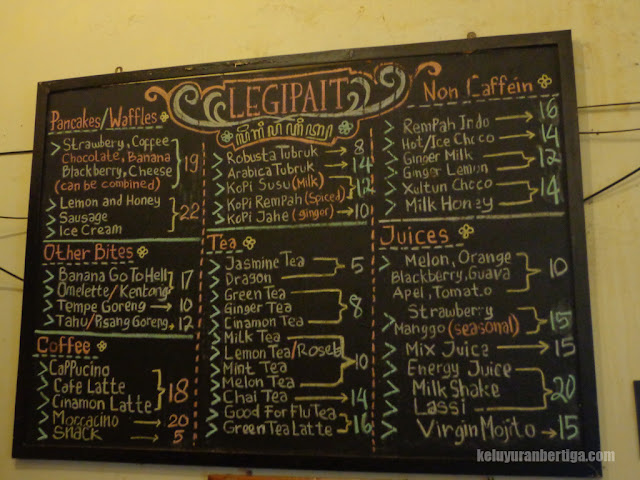 LEGIPAIT
Pancakes/Waffles
Strawbery, Coffee
Chocolate, Banana
Blackberry, Cheese
(can be combined)
19
Lemon and Honey
Sausage
Ice Cream
22
Other Bites
Banana Go To Hell
Omelette/Kentang
17
Tempe Goreng → 10
Tahu/Pisang Goreng → 12
Coffee
Cappucino
Cafe Latte
Cinamon Latte
18
Moccacino → 20
Snack → 5
Robusta Tubruk → 8
Arabica Tubruk → 14
Kopi Susu (Milk)
Kopi Rempah (Spiced)
12
Kopi Jahe (ginger) → 10
Tea
Jasmine Tea
Dragon
5
Green Tea
Ginger Tea
Cinamon Tea
8
Milk Tea
Lemon Tea/Rosela
Mint Tea
Melon Tea
10
Chai Tea → 14
Good For Flu Tea
Green Tea Latte
16
Non Caffein
Rempah Indo → 16
Hot/Ice Choco → 14
Ginger Milk
Ginger Lemon
12
Xultun Choco
Milk Honey
14
Juices
Melon, Orange
Blackberry, Guava
Apel, Tomato
10
Strawberry
Manggo (seasonal)
15
Mix Juice → 15
Energy Juice
Milk Shake
Lassi
20
Virgin Mojito → 15
keluyuranbertiga.com